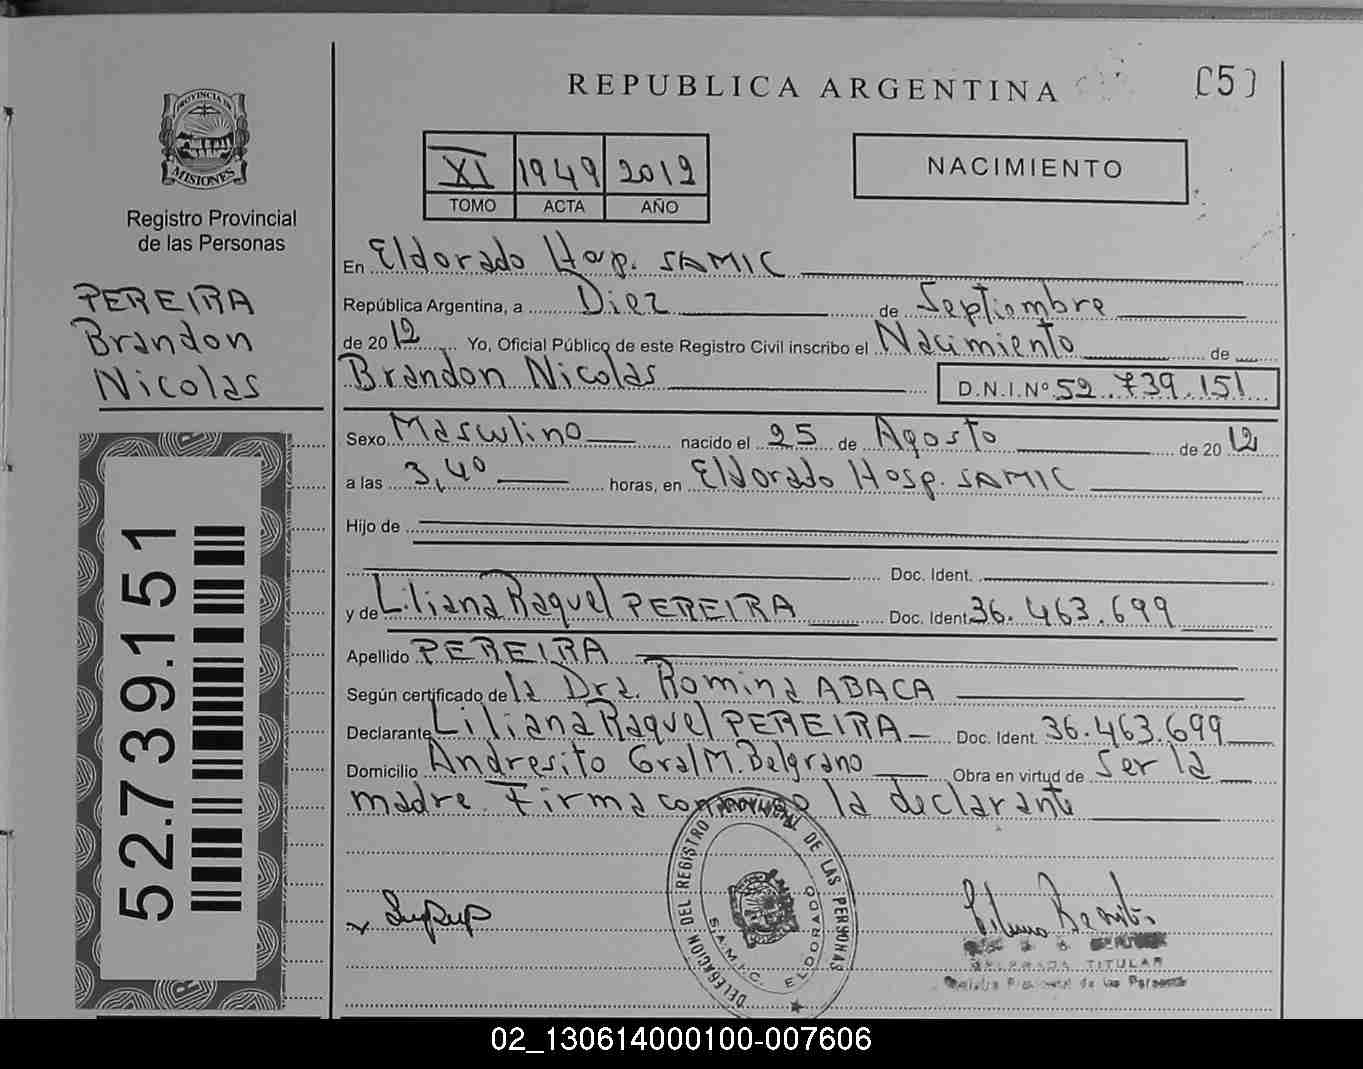 REPUBLICA ARGENTINA
(5)
PROVINCIA DE
MISIONES
Registro Provincial
de las Personas
XI 1949 2012
TOMO ACTA AÑO
NACIMIENTO
PEREIRA
Brandon
Nicolas
En Eldorado Hosp. SAMIC
República Argentina, a Diez de Septiembre
de 2012 Yo, Oficial Público de este Registro Civil inscribo el Nacimiento de
Brandon Nicolas D.N.I.Nº 52.739.151
Sexo Masculino nacido el 25 de Agosto de 2012
a las 3,40 horas, en Eldorado Hosp. SAMIC
Hijo de
Doc. Ident.
y de Liliana Raquel PEREIRA Doc. Ident. 36.463.699
Apellido PEREIRA
Según certificado de la Dra. Romina ABACA
Declarante Liliana Raquel PEREIRA Doc. Ident. 36.463.699
Domicilio Andresito Gral M. Belgrano Obra en virtud de Ser la
madre. Firma la declarante
52.739.151
DELEGACION DEL REGISTRO PROVINCIAL DE LAS PERSONAS
S.A.M.I.C. ELDORADO
TITULAR
de las Personas
02_130614000100-007606